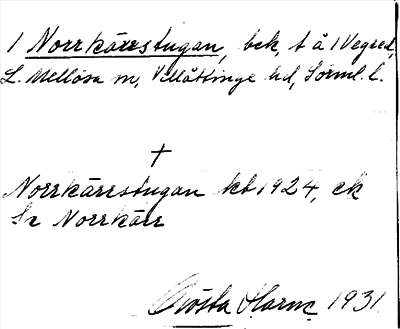 1 Norrkärrstugan, bek, t å 1 Vegred,
L. Mellösa sn, Villåttinge hd, Sörml. l.
+
Norrkärrstugan kb 1924, ek
Se Norrkärr
Gösta 1931